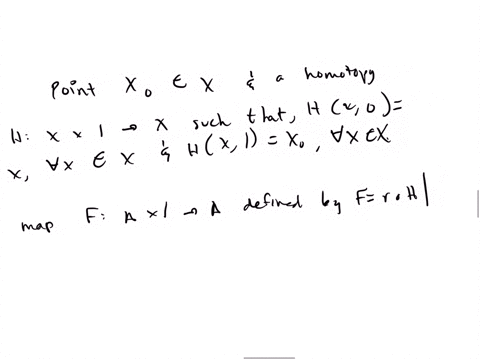 point X₀ ∈ X & a homotopy
H: X × I → X such that, H(x, 0) =
x, ∀x ∈ X & H(x, 1) = X₀, ∀x ∈ X
map F: A × I → A defined by F = r ∘ H|